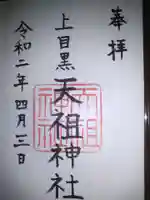 奉拝
上目黒
天祖神社
令和二年四月三日